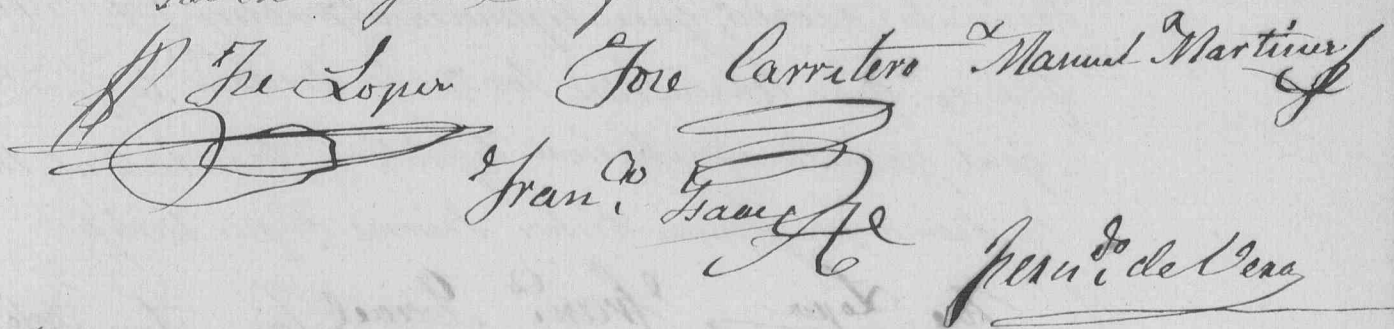 Jse Lopez Jose Carretero Manuel Martinez
Fran.co Isaac
Fern.do de Vera